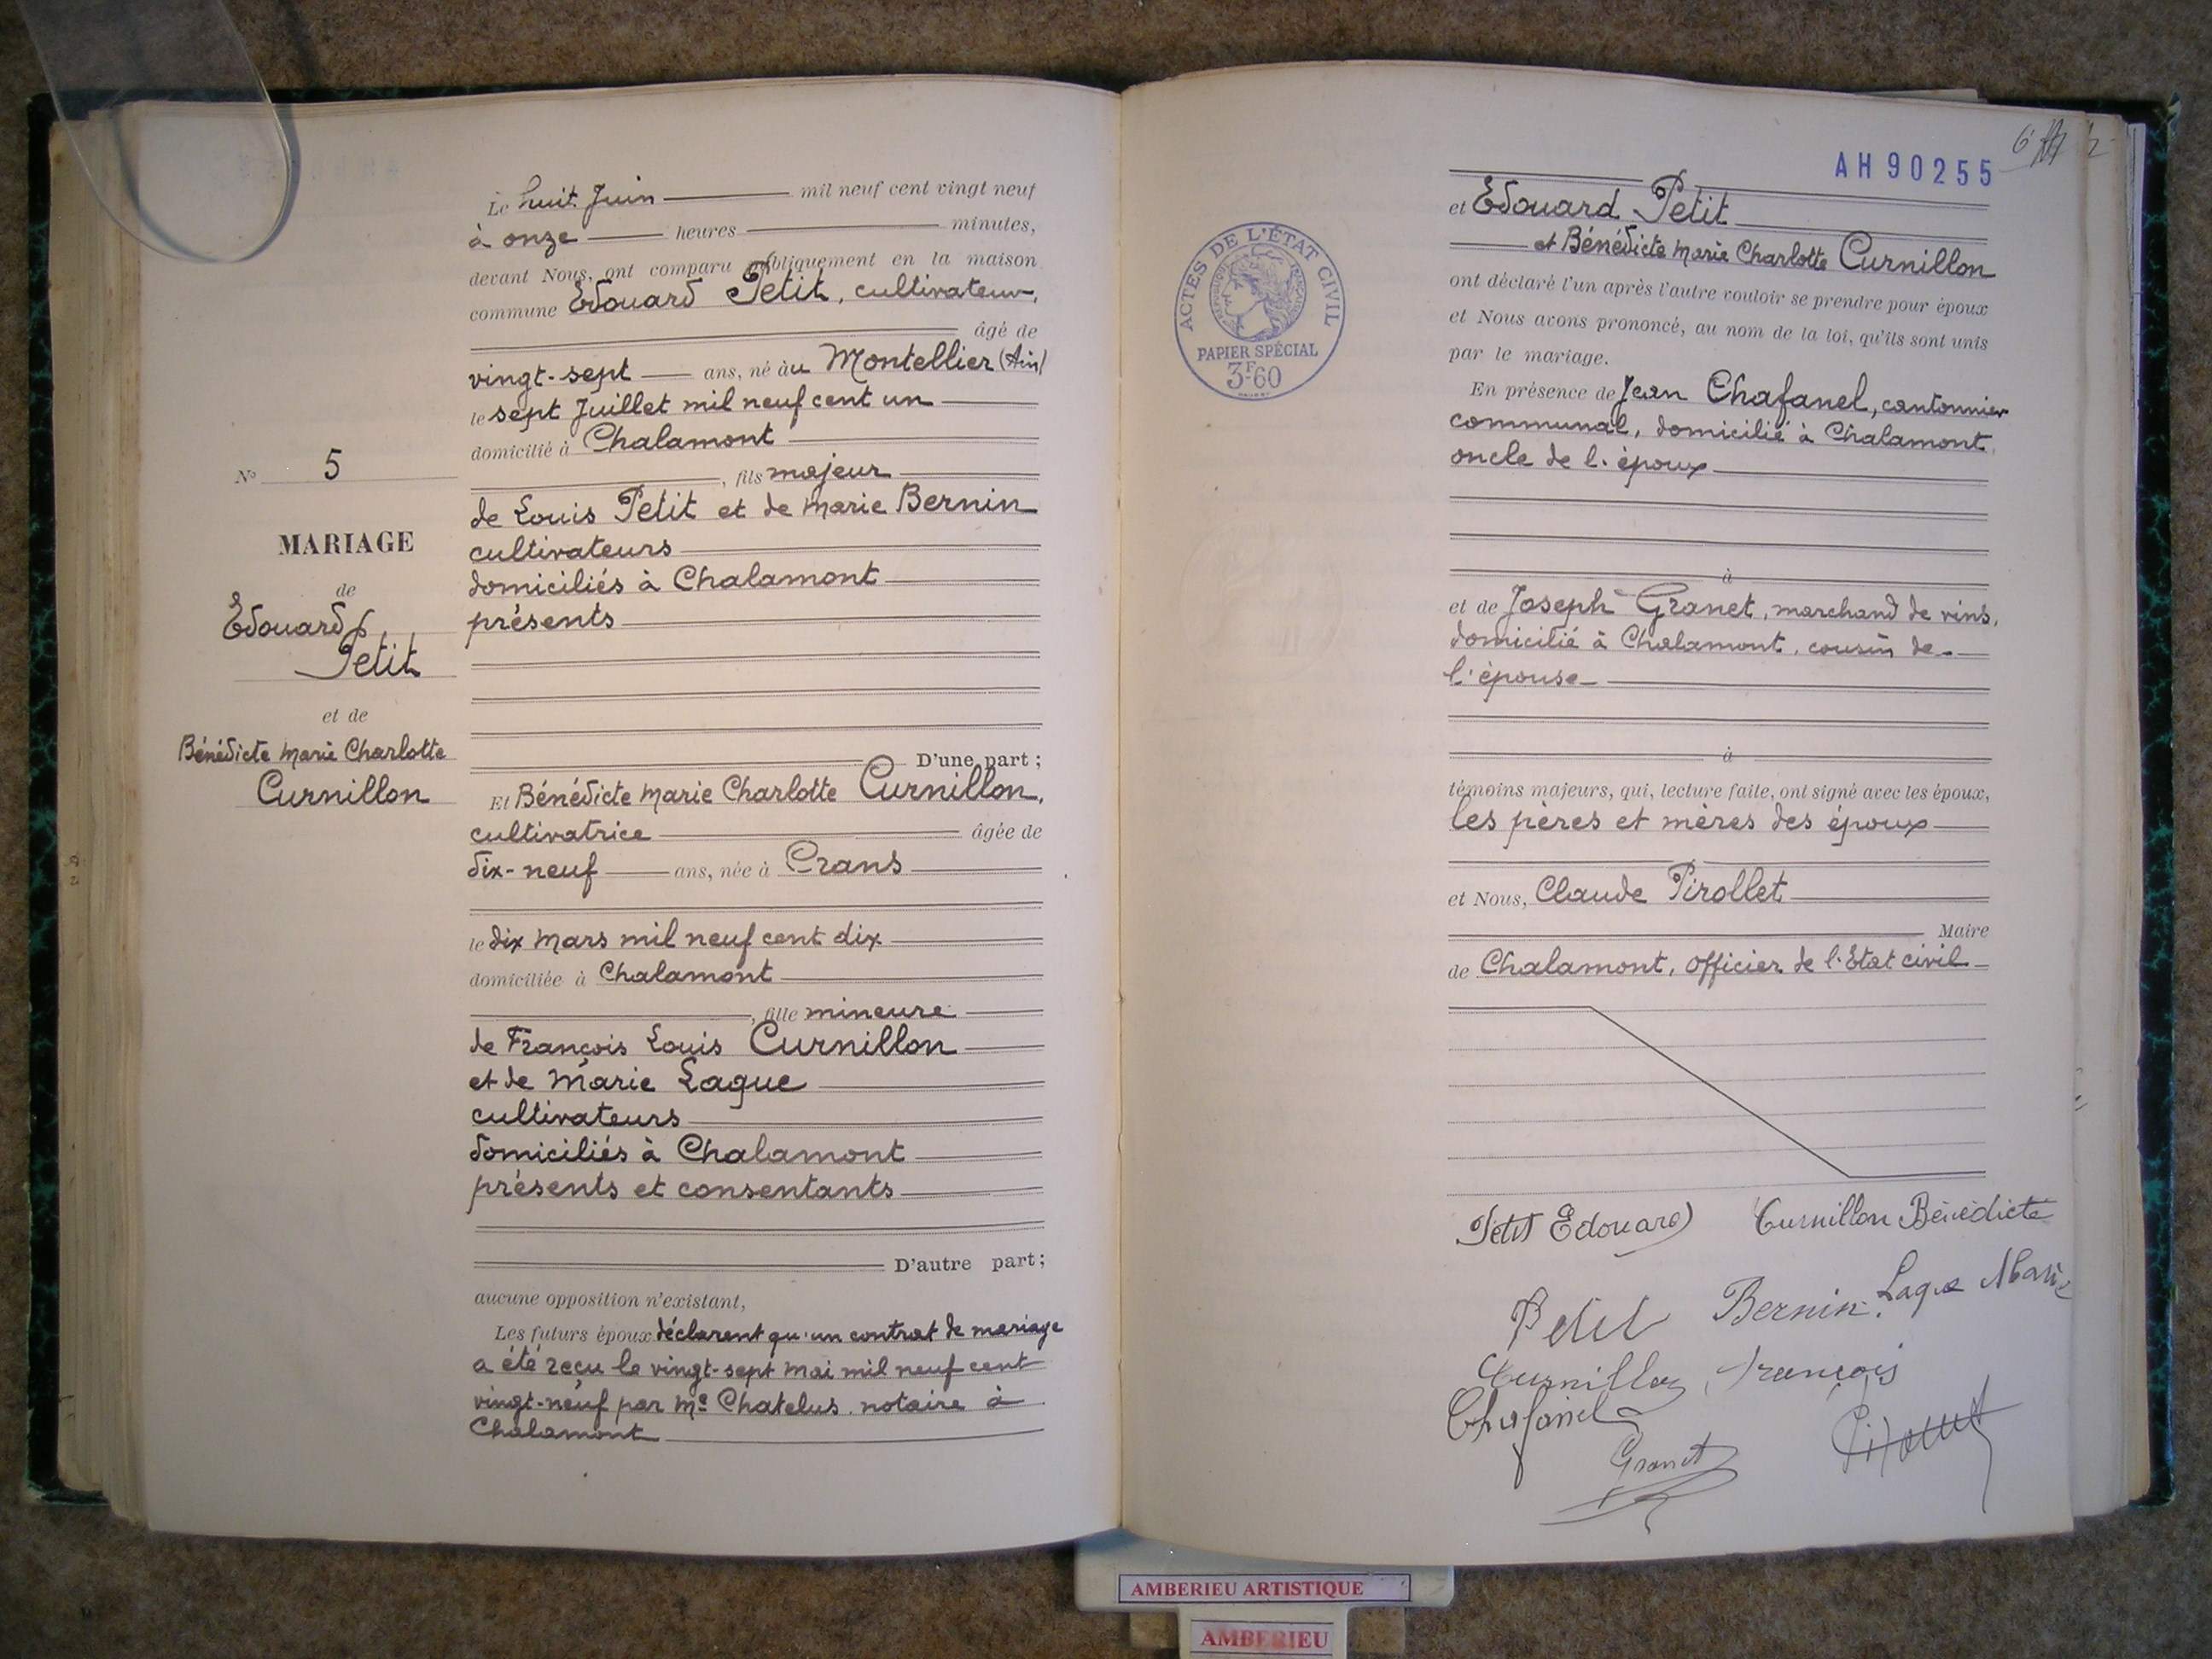 N° 5
MARIAGE
de
Edouard
Petit
et de
Bénédicte Marie Charlotte
Curnillon
Le huit Juin mil neuf cent vingt neuf
à onze heures minutes,
devant Nous, ont comparu publiquement en la maison
commune Edouard Petit, cultivateur,
âgé de
vingt-sept ans, né àu Montellier (Ain)
le sept Juillet mil neuf cent un
domicilié à Chalamont
, fils majeur
de Louis Petit et de Marie Bernin
cultivateurs
domiciliés à Chalamont
présents
D'une part ;
Et Bénédicte Marie Charlotte Curnillon,
cultivatrice âgée de
dix-neuf ans, née à Crans
le dix Mars mil neuf cent dix
domiciliée à Chalamont
, fille mineure
de François Louis Curnillon
et de Marie Lague
cultivateurs
domiciliés à Chalamont
présents et consentants
D'autre part ;
aucune opposition n'existant,
Les futurs époux déclarent qu'un contrat de mariage
a été reçu le vingt-sept Mai mil neuf cent
vingt-neuf par Me Chatelus, notaire à
Chalamont
AH90255
ACTES DE L'ÉTAT CIVIL
RÉPUBLIQUE FRANÇAISE
PAPIER SPÉCIAL
3F.60
et Edouard Petit
et Bénédicte Marie Charlotte Curnillon
ont déclaré l'un après l'autre vouloir se prendre pour époux
et Nous avons prononcé, au nom de la loi, qu'ils sont unis
par le mariage.
En présence de Jean Chafanel, cantonnier
communal, domicilié à Chalamont,
oncle de l'époux
à
et de Joseph Granet, marchand de vins,
domicilié à Chalamont, cousin de
l'épouse
à
témoins majeurs, qui, lecture faite, ont signé avec les époux,
les pères et mères des époux
et Nous, Claude Pirollet
Maire
de Chalamont, Officier de l'Etat civil
Petit Edouard Curnillon Bénédicte
Petit Bernin. Lague Marie
Curnillon François
Chafanel
Granet Pirollet
AMBERIEU ARTISTIQUE
AMBERIEU